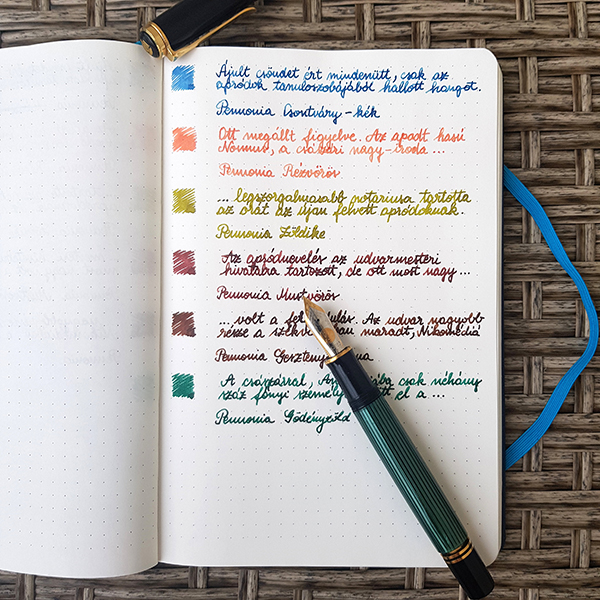 Ájult csöndet ért mindenütt, csak az
apródok tanulószobájából hallott hangot.
Pennonia Csontváry-kék
Ott megállt figyelve. Az apadt hasú
Nonnus, a császári nagy-iroda ...
Pennonia Rézvörös
... legszorgalmasabb notariusa tartotta
az órát az újan felvett apródoknak.
Pennonia Zöldike
Az apródnevelés az udvarmesteri
hivatalba tartozott, de ott most nagy ...
Pennonia Mustvörös
... volt a Az udvar nagyobb
része a maradt, Nikomédiá
Pennonia
A császárral, csak néhány
száz főnyi el a ...
Pennonia Gödényzöld